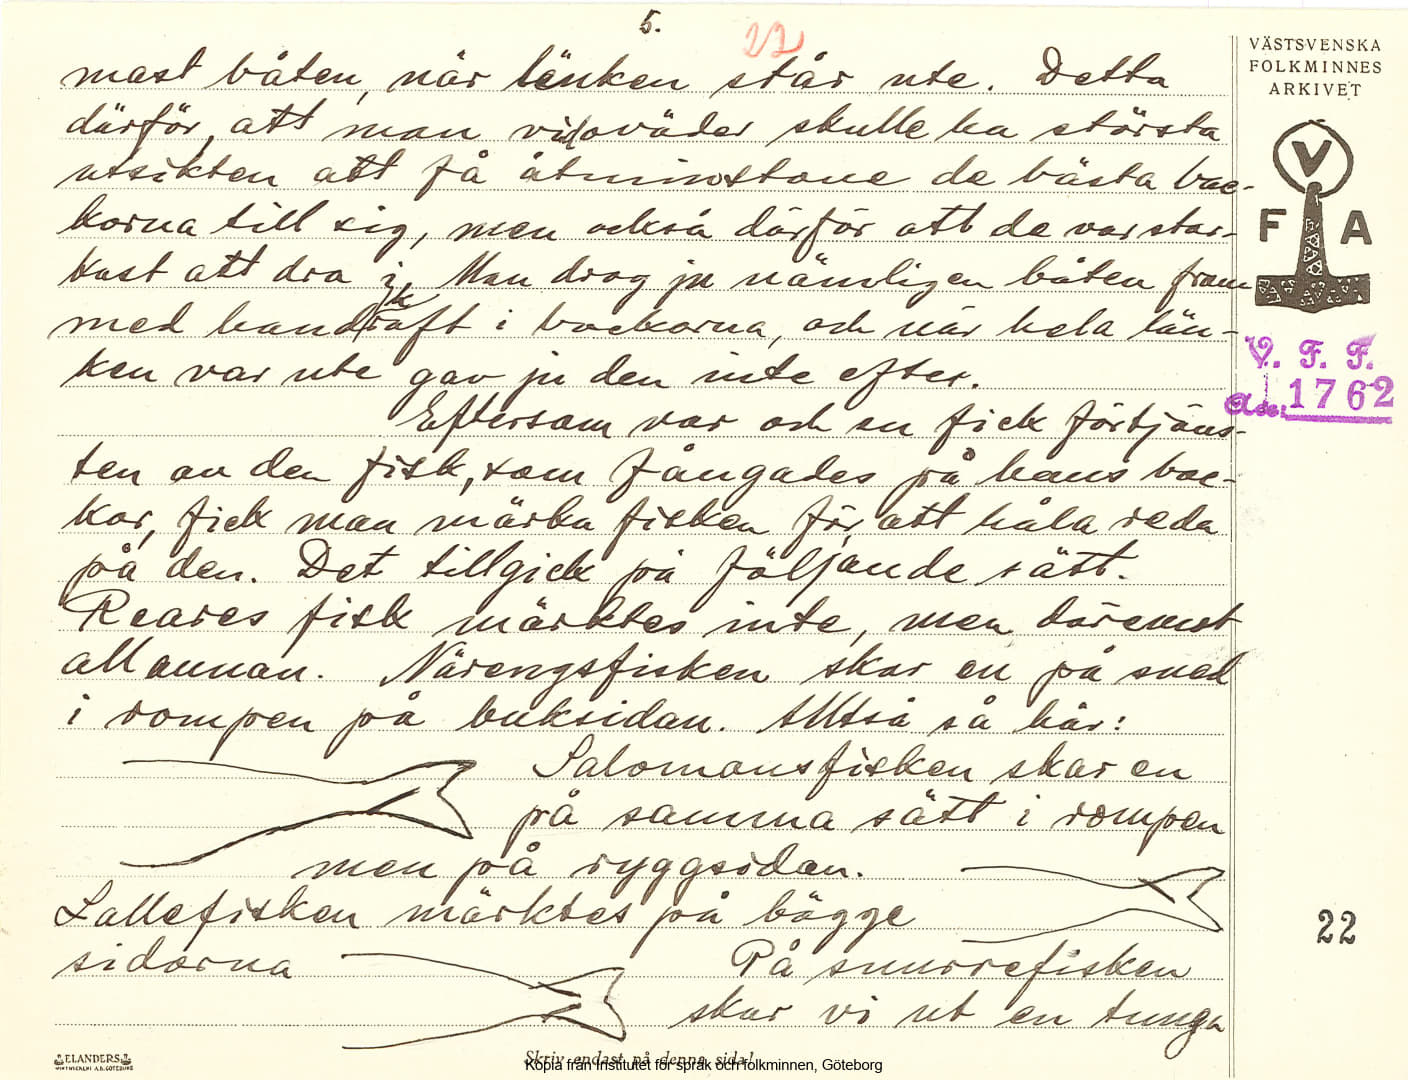 5.
22
mast båten, när länken står ute. Detta
därför, att man vid oväder skulle ha största
utsikten att få åtminstone de bästa bac-
korna till sig, men också därför att de var star-
kast att dra i. Man drog ju nämligen båten fram
med handkraft i backorna, och när hela län-
ken var ute gav ju den inte efter.
Eftersom var och en fick förtjäns-
ten av den fisk, som fångades på hans bac-
kor, fick man märka fisken för att håla reda
på den. Det tillgick på följande sätt.
Reares fisk märktes inte, men däremot
all annan. Närengsfisken skar en på sned
i rompen på buksidan. Alltså så här:
Salomonsfisken skar en
på samma sätt i rompen
men på ryggsidan.
Lallefisken märktes på bägge
sidorna
På snurrefisken
skar vi ut en tunga
VÄSTSVENSKA
FOLKMINNES
ARKIVET
V
F A
V. F. F.
1762
22
ELANDERS
Skriv endast på denna sida!
Kopia från Institutet för språk och folkminnen, Göteborg